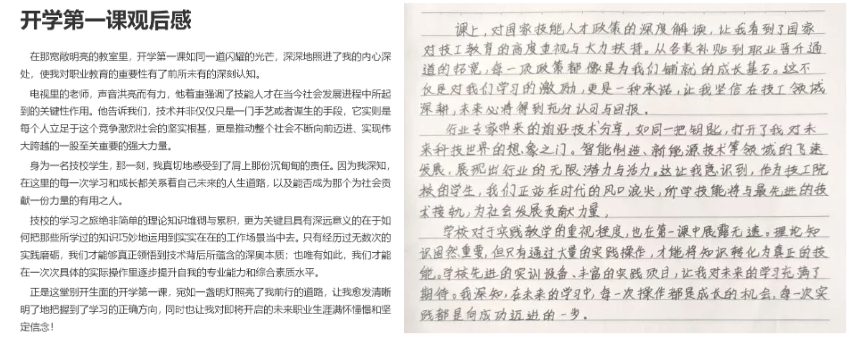 开学第一课观后感
在那宽敞明亮的教室里，开学第一课如同一道闪耀的光芒，深深地照进了我的内心深
处，使我对职业教育的重要性有了前所未有的深刻认知。
电视里的老师，声音洪亮而有力，他着重强调了技能人才在当今社会发展进程中所起
到的关键性作用。他告诉我们，技术并非仅仅只是一门手艺或者谋生的手段，它实则是
每个人立足于这个竞争激烈社会的坚实根基，更是推动整个社会不断向前迈进、实现伟
大跨越的一股至关重要的强大力量。
身为一名技校学生，那一刻，我真切地感受到了肩上那份沉甸甸的责任。因为我深知，
在这里的每一次学习和成长都关系着自己未来的人生道路，以及能否成为那个为社会贡
献一份力量的有用之人。
技校的学习之旅绝非简单的理论知识堆砌与累积，更为关键且具有深远意义的在于如
何把那些所学过的知识巧妙地运用到实实在在的工作场景当中去。只有经历过无数次的
实践磨砺，我们才能够真正领悟到技术背后所蕴含的深奥本质；也唯有如此，我们才能
在一次次具体的实际操作里逐步提升自我的专业能力和综合素质水平。
正是这堂别开生面的开学第一课，宛如一盏明灯照亮了我前行的道路，让我愈发清晰
明了地把握到了学习的正确方向，同时也让我对即将开启的未来职业生涯满怀憧憬和坚
定信念！
课上，对国家技能人才政策的深度解读，让我看到了国家
对技工教育的高度重视与大力扶持。从各类补贴到职业晋升通
道的拓宽，每一项政策都像是为我们铺就的成长基石。这不
仅是对我们学习的激励，更是一种承诺，让我坚信在技工领域
深耕，未来必将得到充分认可与回报。
行业专家带来的前沿技术分享，如同一把钥匙，打开了我对未
来科技世界的想象之门。智能制造、新能源技术等领域的飞速
发展，展现出行业的无限潜力与活力。这让我意识到，作为技工院
校的学生，我们正站在时代的风口浪尖，所学技能将与最先进的技
术接轨，为社会发展贡献力量。
学校对于实践教学的重视程度，也在第一课中展露无遗。理论知
识固然重要，但只有通过大量的实践操作，才能将知识转化为真正的技
能。学校先进的实训设备、丰富的实践项目，让我对未来的学习充满了
期待。我深知，在未来的学习中，每一次操作都是成长的机会，每一次实
践都是向成功迈进的一步。